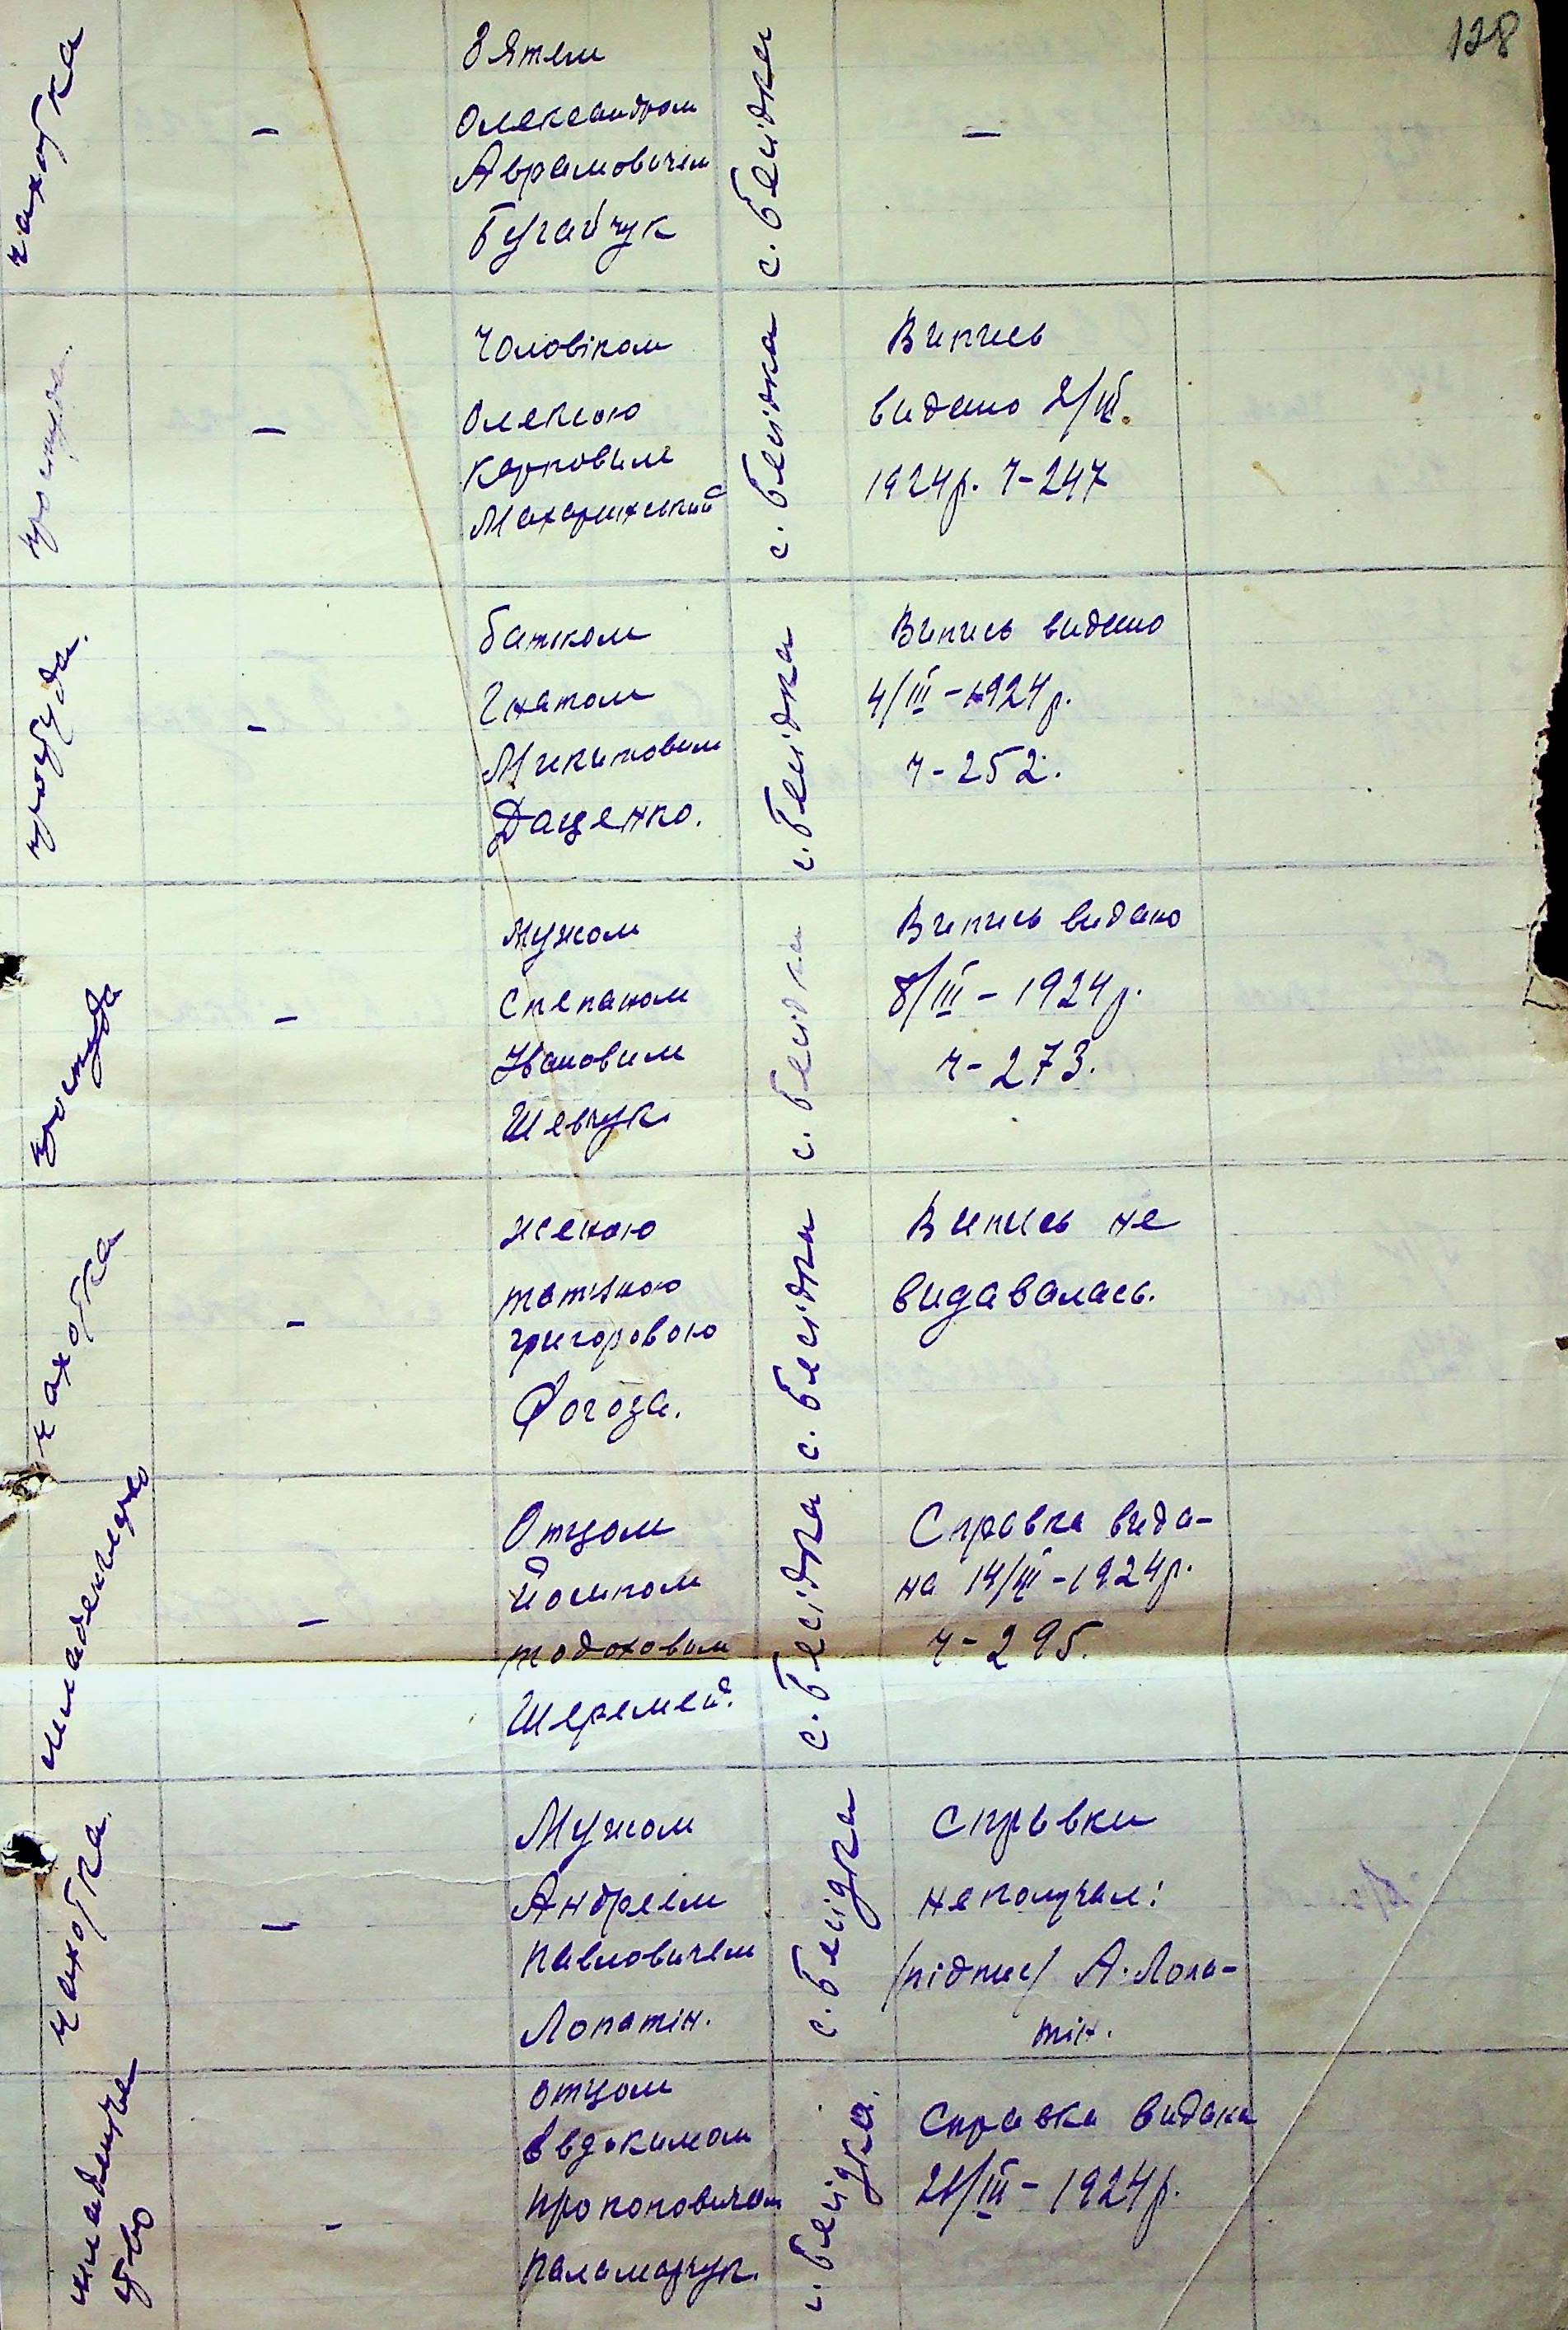 128
чахотка
—
Зятем
Олександром
Аврамовичем
Бугайчук
с. Бесідка
—
простуда.
—
Чоловіком
Олексою
Карповим
с. Бесідка
Випись
видано 2/III.
1924р. Ч-247
простуда.
—
батьком
Гнатом
Микитовим
Даценко.
с. Бесідка
Випись видано
4/III-1924р.
ч-252.
простуда
—
мужом
Степаном
Ивановим
Шевчук
с. Бесідка
Випись видано
8/III-1924р.
ч-273.
чахотка
—
женою
григоровою
Рогоза.
с. Бесідка
Випись не
видавалась.
младенчество
—
Отцом
Йосипом
Шеремей.
с. Бесідка
Справка вида-
на 14/III-1924р.
ч-295.
чахотка.
—
Мужом
Андреєм
Павловичем
Лопатін.
с. Бесідка
Справки
не получал:
/підпис/ А. Лопа-
тін.
младенче
ство
—
отцом
Евдокимом
Прокоповичом
Паламарчук.
с. Бесідка.
Справка видана
21/III-1924р.